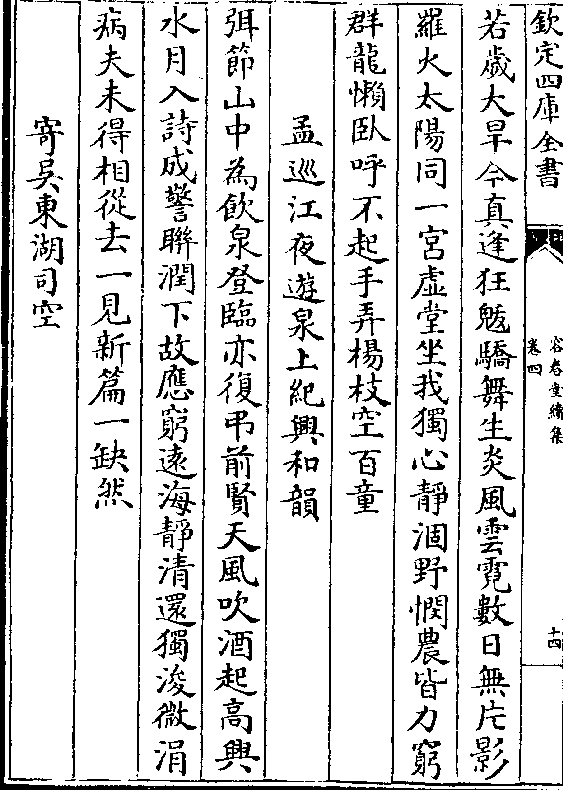 欽定四庫全書
容春堂續集
卷四
十四
若歲大旱今真逢狂魃驕舞生炎風雲霓數日無片影
羅火太陽同一宮虛堂坐我獨心靜涸野憫農皆力窮
群龍懶卧呼不起手弄楊枝空百童
孟巡江夜遊泉上紀興和韻
弭節山中為飲泉登臨亦復弔前賢天風吹酒起高興
水月入詩成警聯潤下故應窮遠海靜清還獨浚微涓
病夫未得相從去一見新篇一缺然
寄吳東湖司空